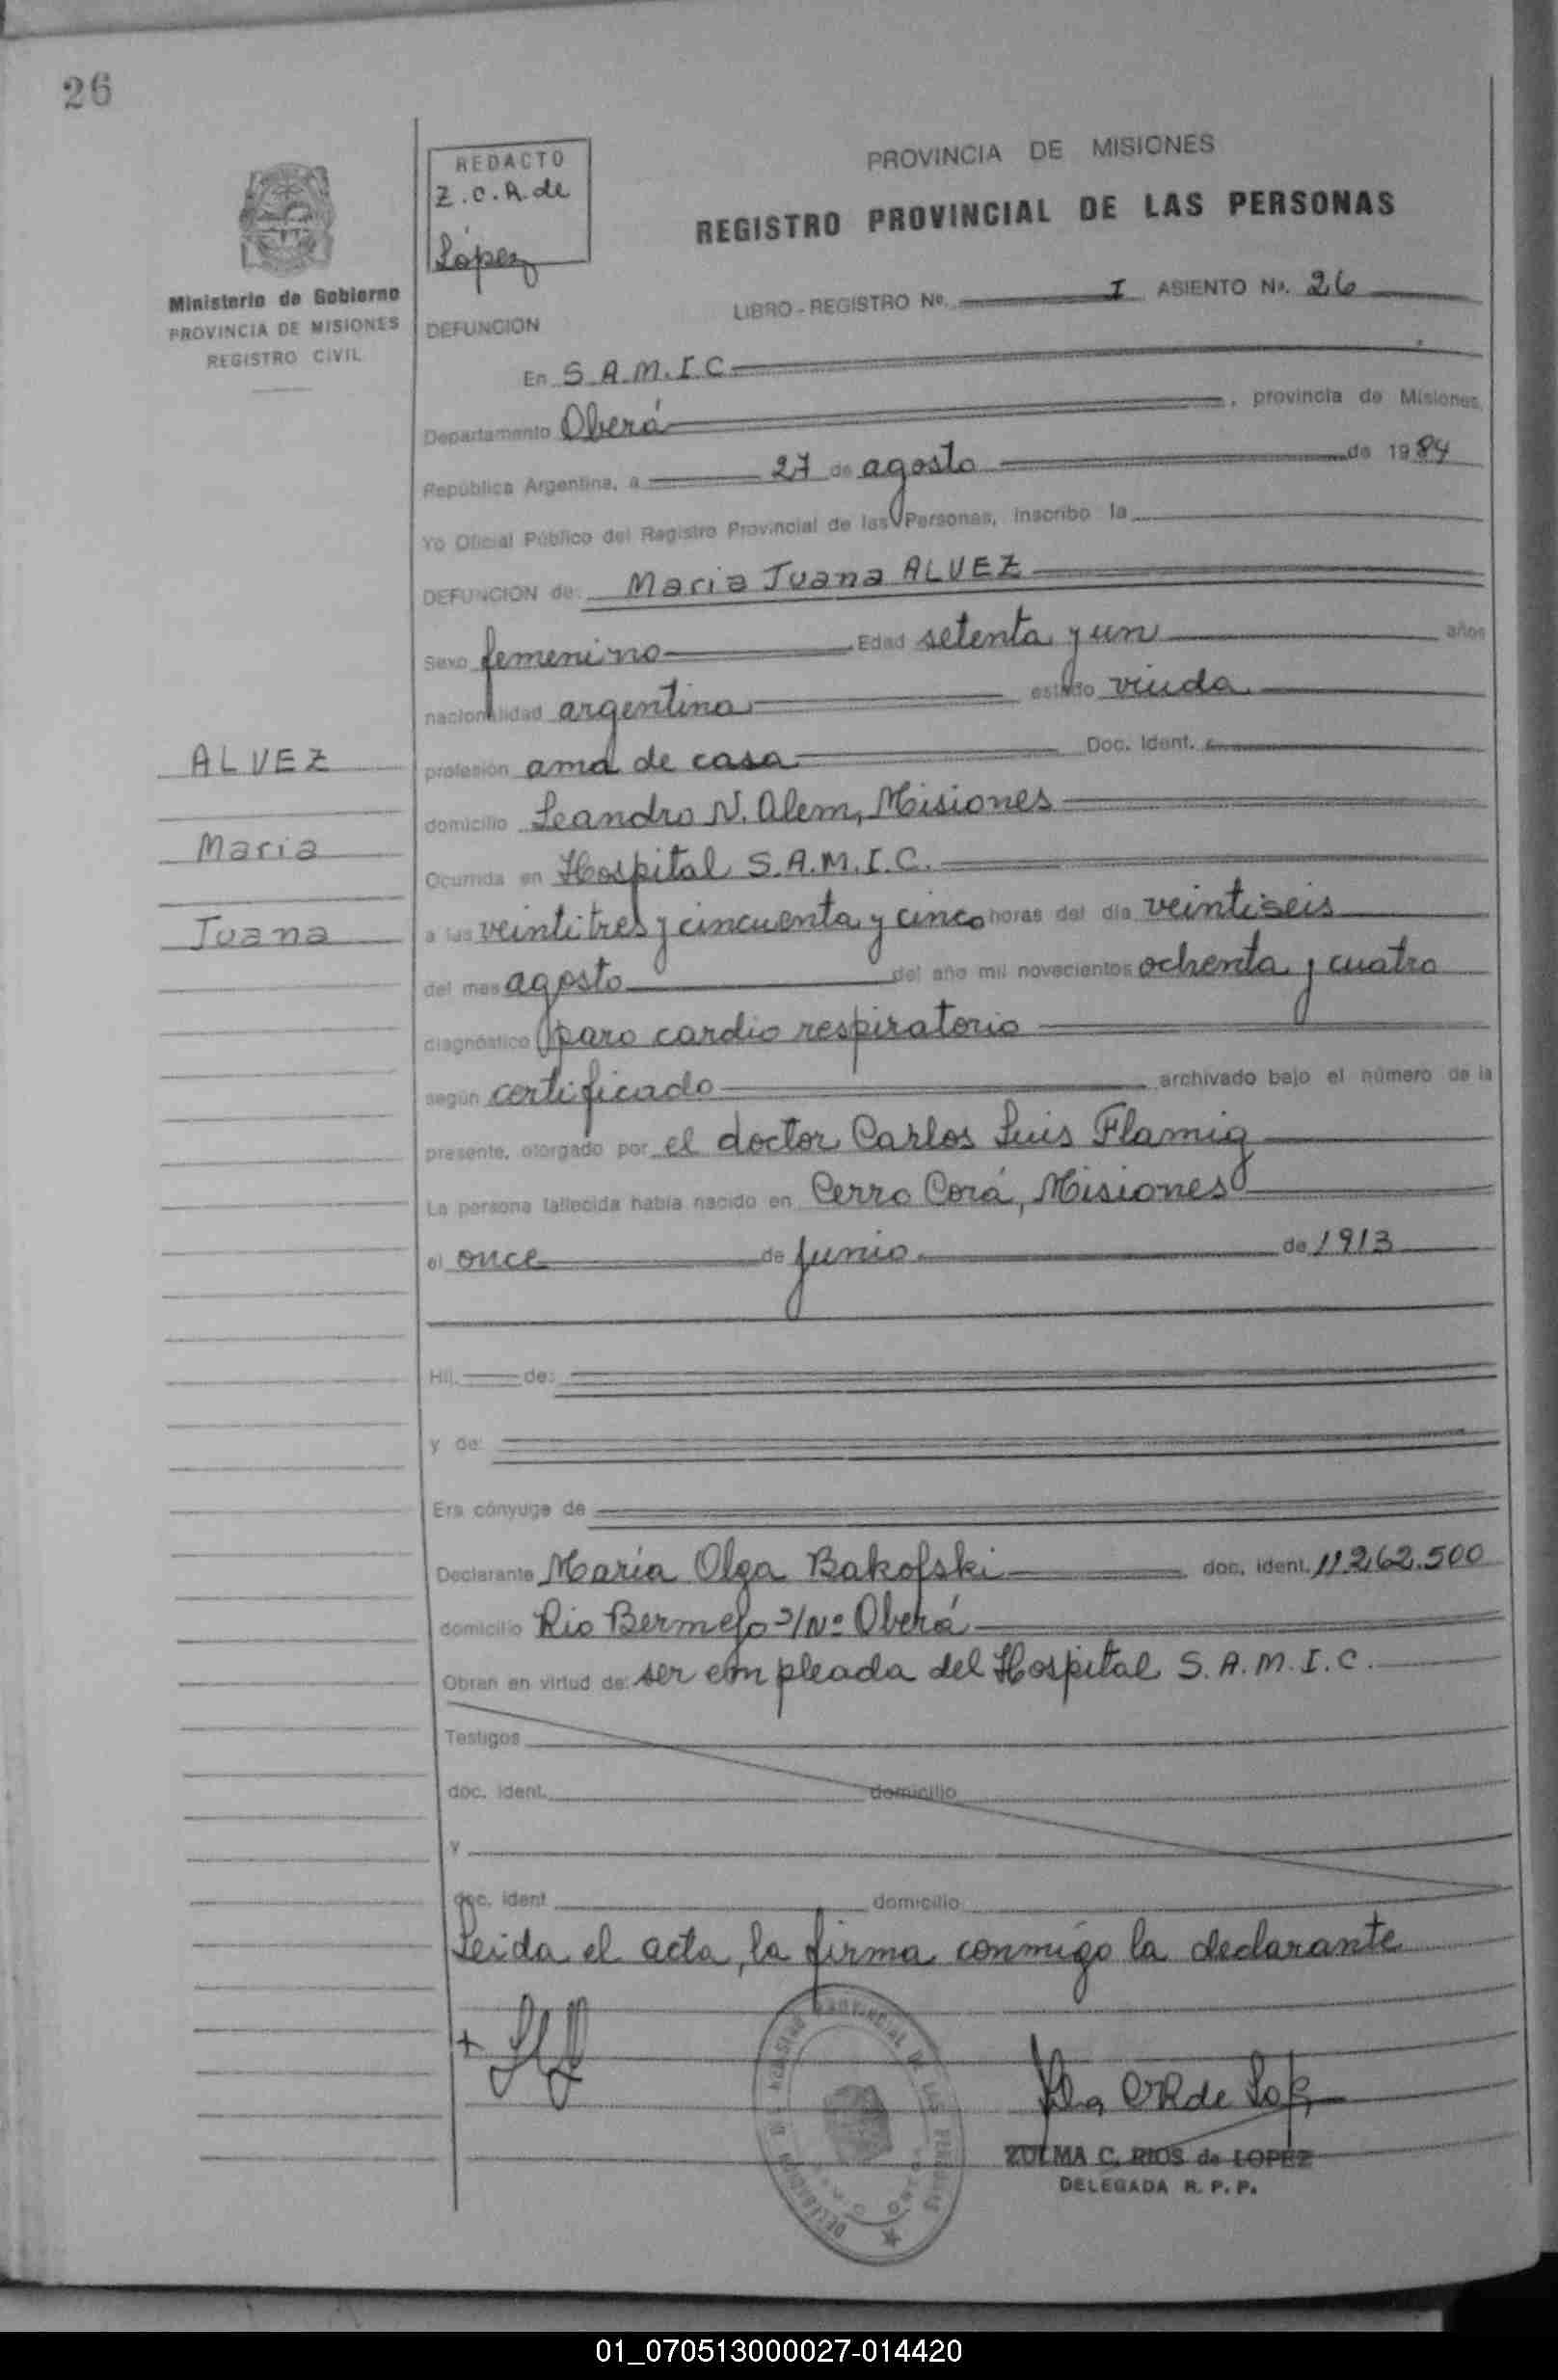 26
REDACTO
Z.C.R. de
López
Ministerio de Gobierno
PROVINCIA DE MISIONES
REGISTRO CIVIL
PROVINCIA DE MISIONES
REGISTRO PROVINCIAL DE LAS PERSONAS
LIBRO-REGISTRO No. I ASIENTO No. 26
DEFUNCION
En S.A.M.I.C
Departamento Oberá, provincia de Misiones,
República Argentina, a 27 de agosto de 1984
Yo Oficial Público del Registro Provincial de las Personas, inscribo la
DEFUNCION de: Maria Juana ALVEZ
Sexo femenino Edad setenta y un años
nacionalidad argentina estado viuda
profesión ama de casa Doc. Ident.
domicilio Leandro N. Alem, Misiones
Ocurrida en Hospital S.A.M.I.C.
a las veintitres y cincuenta y cinco horas del día veintiseis
del mes agosto del año mil novecientos ochenta y cuatro
diagnóstico paro cardio respiratorio
según certificado archivado bajo el número de la
presente, otorgado por el doctor Carlos Luis Flamig
La persona fallecida había nacido en Cerro Corá, Misiones
el once de junio de 1913
Hij. de:
y de:
Era cónyuge de
Declarante María Olga Bakofski doc. ident. 11.262.500
domicilio Rio Bermejo s/Nº Oberá
Obran en virtud de: ser empleada del Hospital S.A.M.I.C.
Testigos
doc. ident. domicilio
y
doc. ident domicilio
Leida el acta, la firma conmigo la declarante
ALVEZ
Maria
Juana
ZULMA C. RIOS de LOPEZ
DELEGADA R. P. P.
01_070513000027-014420